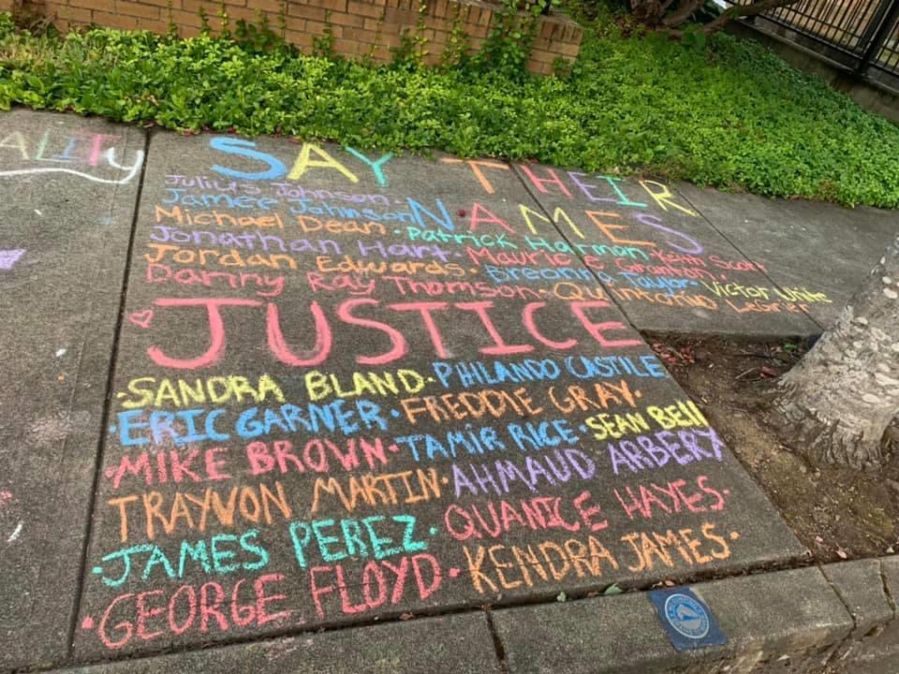 ALITY
SAY THEIR
Julius Johnson
Jamee Johnson
NAMES
Michael Dean · Patrick Harman
Jonathan Hart · Maurice Granton · Keith Scott
Jordan Edwards · Breonna Taylor · Victor
Danny Ray Thomson · Quintonio LeGrier
JUSTICE
·SANDRA BLAND·PHILANDO CASTILE
·ERIC GARNER·FREDDIE GRAY·
·MIKE BROWN·TAMIR RICE·SEAN BELL
TRAYVON MARTIN·AHMAUD ARBERY
·JAMES PEREZ·QUANICE HAYES·
·GEORGE FLOYD·KENDRA JAMES·